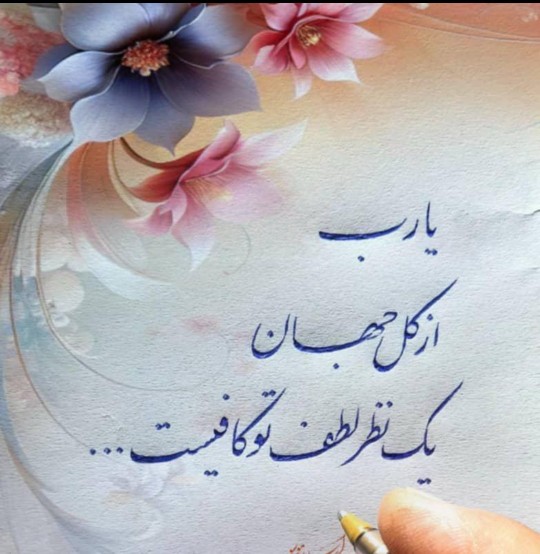 یارب
از کل جهان
یک نظر لطف تو کافیست...